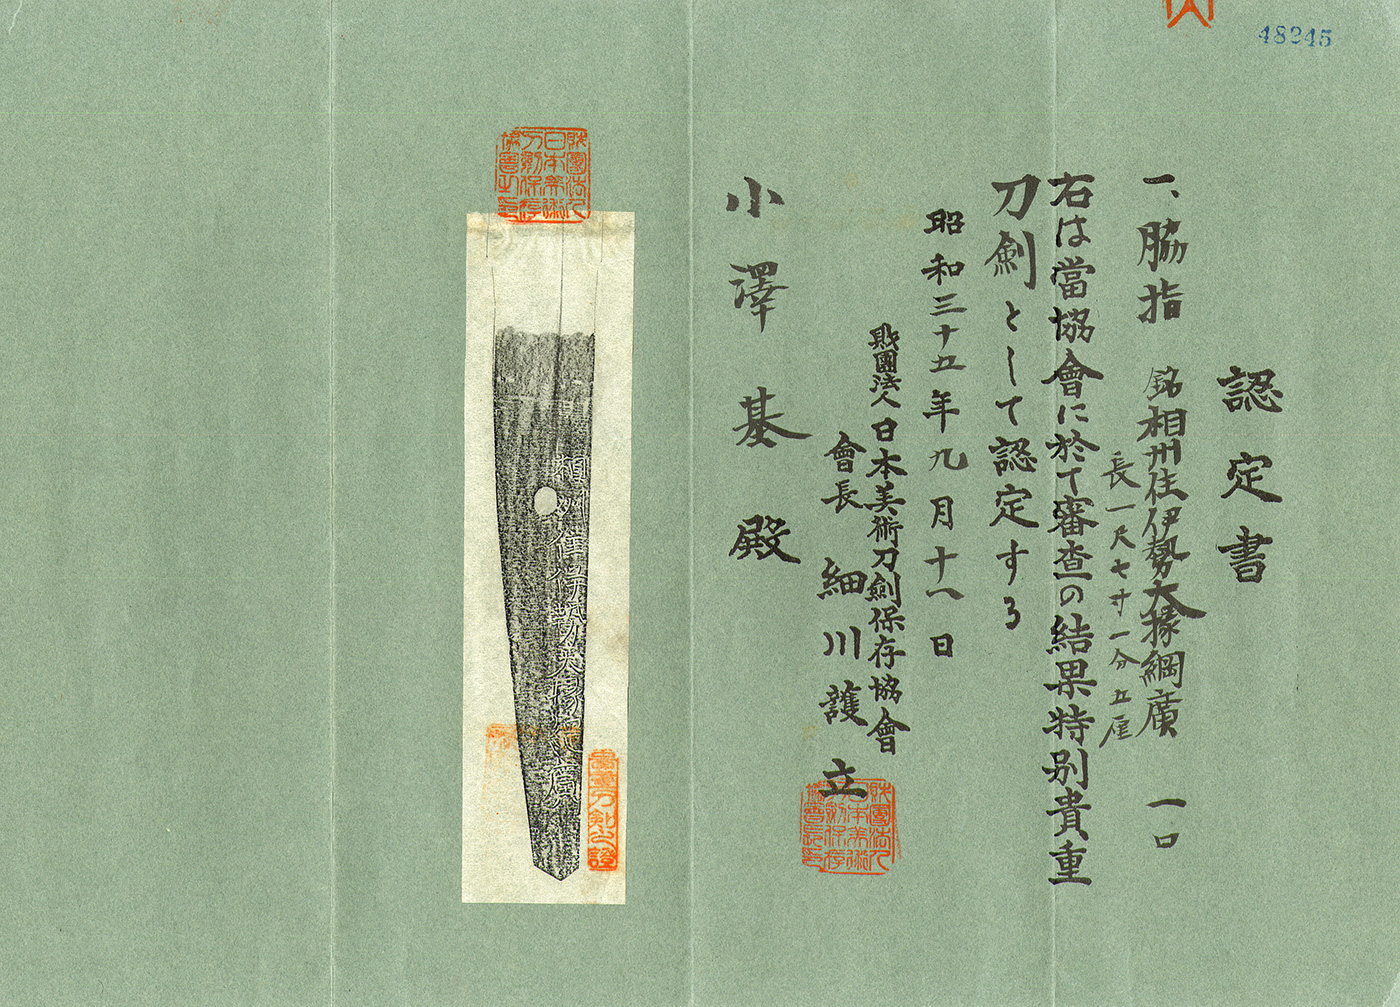 48245
認定書
一、脇指 銘相州住伊勢大掾綱廣 一口
長一尺七寸一分五厘
右は當協會に於て審査の結果特別貴重
刀劍として認定する
昭和三十五年九月十八日
財團法人日本美術刀劍保存協會
會長 細川護立
小澤基殿
財團法人日本美術刀劍保存協會長印
財團法人日本美術刀劍保存協會之印
相州住伊勢大掾綱廣
貴重刀剣之證